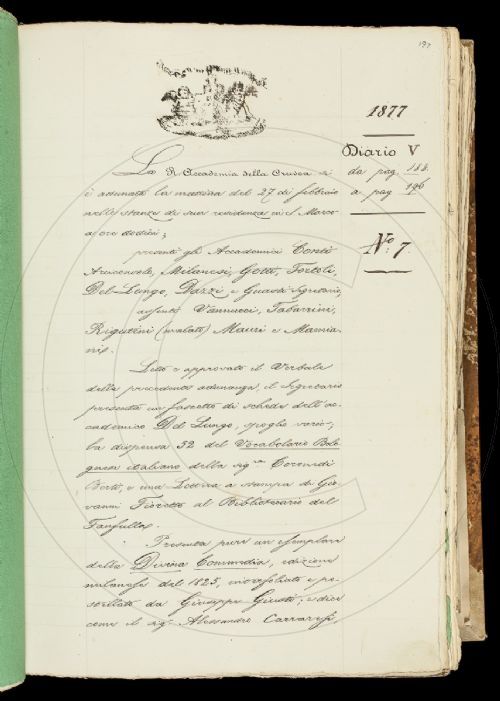 197
1877
Diario V
da pag. 188.
a pag. 196
N.o 7.
La R. Accademia della Crusca si
è adunata la mattina del 27 di febbraio
nelle stanze di sua residenza in S. Marco
a ore dodici;
presenti gli Accademici Conti
Arciconsolo, Milanesi, Gotti, Tortoli,
Del Lungo, Dazzi e Guasti Segretario,
assenti Vannucci, Tabarrini,
Rigutini (malato) Mauri e Mamia-
ni.
Letto e approvato il Verbale
della precedente adunanza, il Segretario
presenta un fascetto di schede dell'ac-
cademico Del Lungo, spoglio vario;
la dispensa 32 del Vocabolario Bolo-
gnese italiano della sig.ra Coronedi
Berti, e una Lettera a stampa di Gio-
vanni Fioretto al Bibliotecario del
Fanfulla.
Presenta pure un esemplare
della Divina Commedia, edizione
milanese del 1825, interfogliato e po-
stillato da Giuseppe Giusti; e dice
come il sig. Alessandro Carraresi,